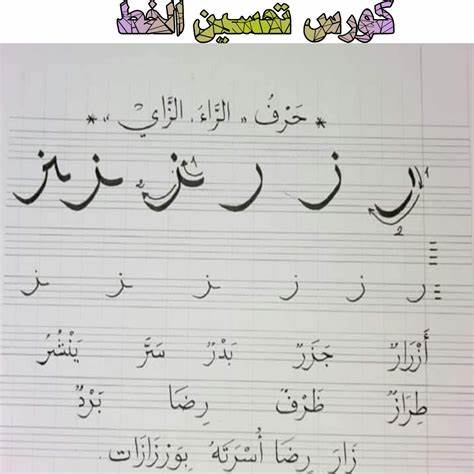 كورس تحسين الخط
* حَرْفُ « الرَّاءَ، الزَّاي » *
ر ز ر ـز ـز
ر ز ز ـز ـز ـز
أَزْرَارٌ جَزَرٌ بَدْرٌ سَرَّ يَنْشُرُ
طِرَازٌ ظَرْفٌ رِضَا بَرْدٌ
زَارَ رِضَا أُسْرَتَهُ بِوَرْزَازَات.